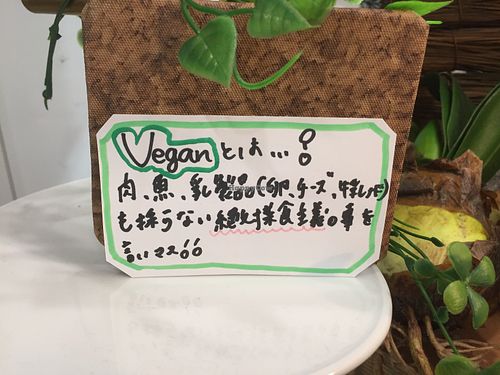 Veganとは…?
肉、魚、乳製品(卵、チーズ、牛乳など)
も採らない絶対菜食主義の事を
言いマス